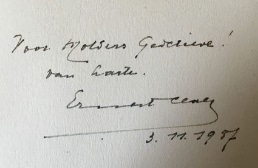 Voor Molders Gedelieve!
van harte.
Ernest Claes
3.11.1957